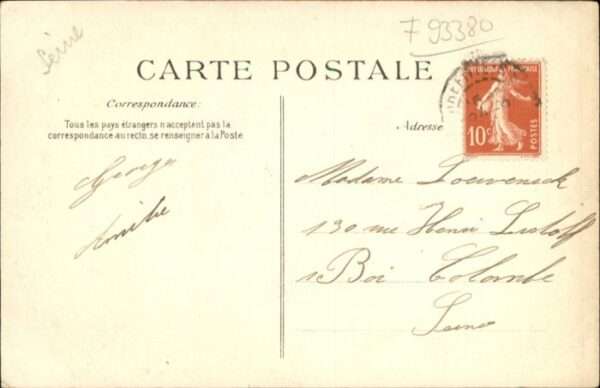 Seine
F 93380
CARTE POSTALE
Correspondance:
Tous les pays étrangers n'acceptent pas la
correspondance au recto, se renseigner à la Poste
Adresse
REPUBLIQUE FRANÇAISE
10c
POSTES
Madame
130 rue Henri
Boi Colombe
Seine